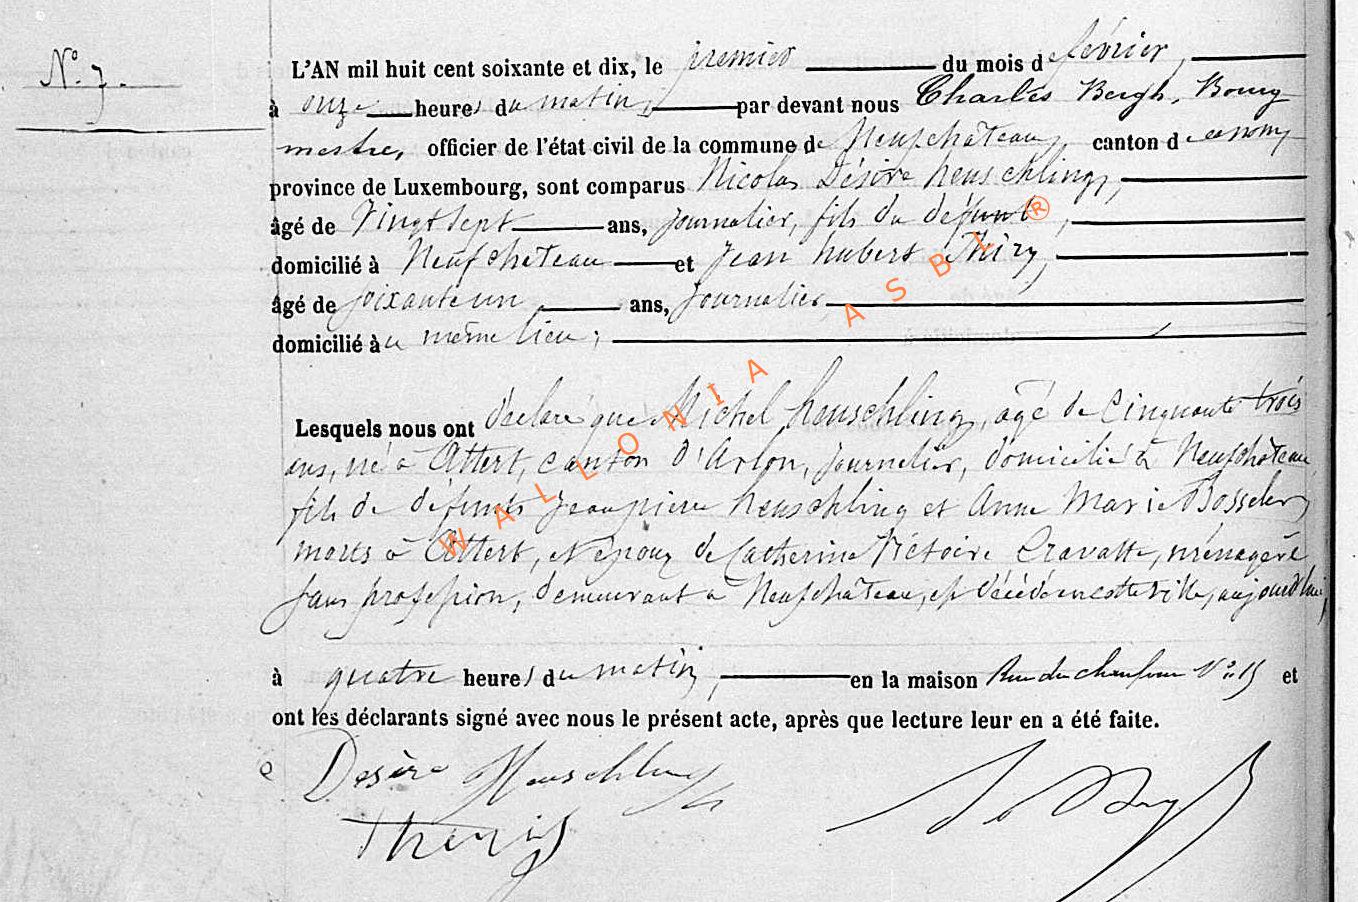 N° 7.
L'AN mil huit cent soixante et dix, le premier du mois de février,
à onze heures du matin, par devant nous Charles Bergh, Bourg
mestre, officier de l'état civil de la commune de Neufchâteau, canton de
province de Luxembourg, sont comparus Nicolas Désiré heuschling,
âgé de Vingt sept ans, journalier, fils du défunt,
domicilié à Neufchateau et Jean hubert Thiry,
âgé de soixante un ans, journalier
domicilié au même lieu;
Lesquels nous ont déclaré que Michel heuschling, âgé de Cinquante trois
ans, né à Attert, canton d'Arlon, journalier, domicilié à Neufchâteau,
fils de défunts Jean pierre heuschling et Anne Marie Bosseler,
morts à Attert, et époux de Catherine Victoire Cravatte, ménagère
sans profession, demeurant à Neufchâteau, est décédé en cette ville, aujourd'hui,
à quatre heures du matin, en la maison Rue du chaufour N° 15 et
ont les déclarants signé avec nous le présent acte, après que lecture leur en a été faite.
Desiré Heuschling
WALLONIA ASBL ®